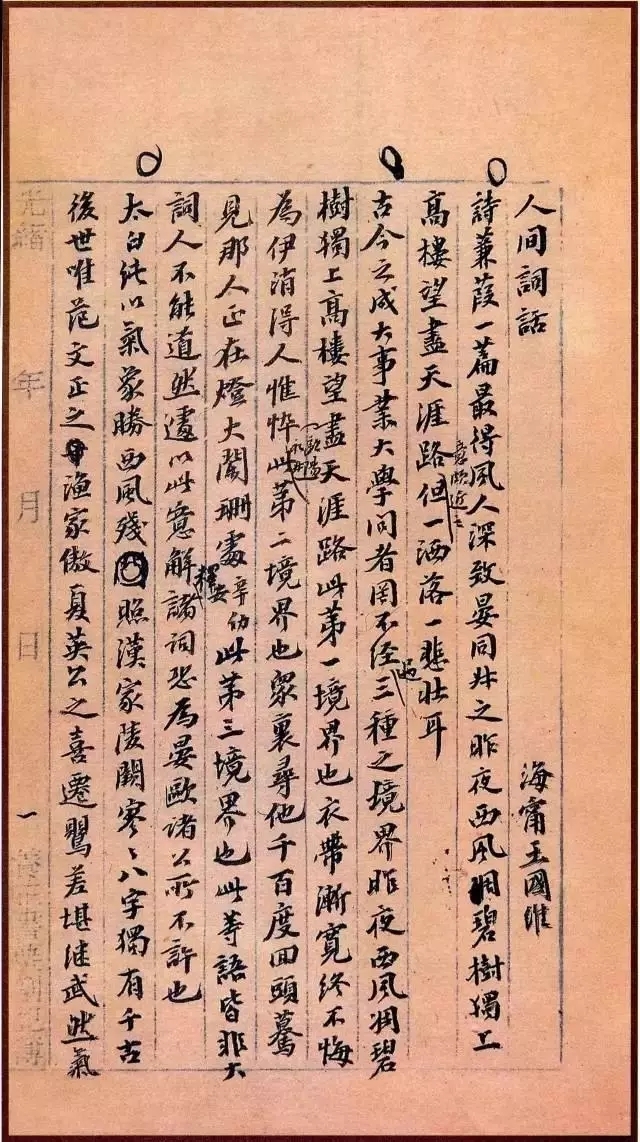 人间詞話 海甯王國維
詩蒹葭一篇最得風人深致晏同叔之昨夜西風凋碧樹獨上
高樓望盡天涯路意頗近之但一洒落一悲壯耳
古今之成大事業大學問者罔不經過三種之境界昨夜西風凋碧
樹獨上高樓望盡天涯路此第一境界也衣帶漸寬終不悔
為伊消得人憔悴歐陽永叔此第二境界也眾裏尋他千百度回頭驀
見那人正在燈火闌珊處辛幼安此第三境界也此等語皆非大
詞人不能道然遽以此意解釋諸詞恐為晏歐諸公所不許也
太白純以氣象勝西風殘照漢家陵闕寥〻八字獨有千古
後世唯范文正之漁家傲夏英公之喜遷鶯差堪继武然氣
光緒 年 月 日 一